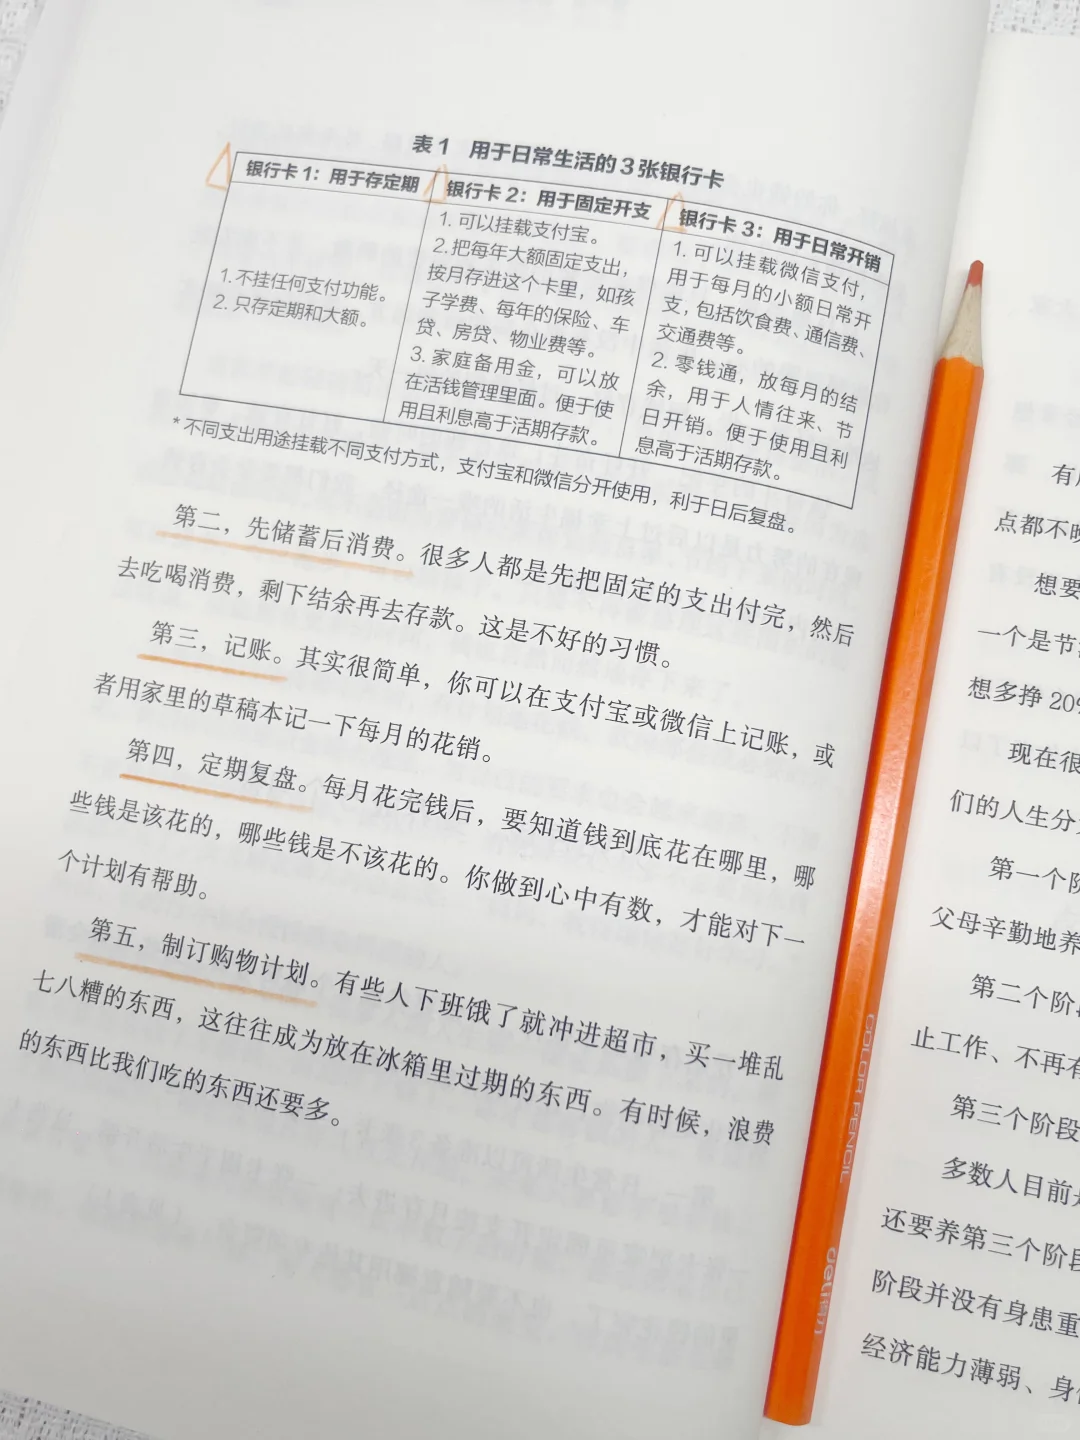 表1 用于日常生活的3张银行卡
银行卡1：用于存定期
1.不挂任何支付功能。
2. 只存定期和大额。
银行卡2：用于固定开支
1. 可以挂载支付宝。
2. 把每年大额固定支出，
按月存进这个卡里，如孩
子学费、每年的保险、车
贷、房贷、物业费等。
3. 家庭备用金，可以放
在活钱管理里面。便于使
用且利息高于活期存款。
银行卡3：用于日常开销
1. 可以挂载微信支付，
用于每月的小额日常开
支，包括饮食费、通信费、
交通费等。
2. 零钱通，放每月的结
余，用于人情往来、节
日开销。便于使用且利
息高于活期存款。
*不同支出用途挂载不同支付方式，支付宝和微信分开使用，利于日后复盘。
第二，先储蓄后消费。很多人都是先把固定的支出付完，然后
去吃喝消费，剩下结余再去存款。这是不好的习惯。
第三，记账。其实很简单，你可以在支付宝或微信上记账，或
者用家里的草稿本记一下每月的花销。
第四，定期复盘。每月花完钱后，要知道钱到底花在哪里，哪
些钱是该花的，哪些钱是不该花的。你做到心中有数，才能对下一
个计划有帮助。
第五，制订购物计划。有些人下班饿了就冲进超市，买一堆乱
七八糟的东西，这往往成为放在冰箱里过期的东西。有时候，浪费
的东西比我们吃的东西还要多。
COLOR PENCIL
deli
点都不
想要
一个是节
想多挣20
现在很
们的人生分
第一个阶
父母辛勤地养
第二个阶
止工作、不再有
第三个阶段
多数人目前
还要养第三个阶段
阶段并没有身患重
经济能力薄弱、身